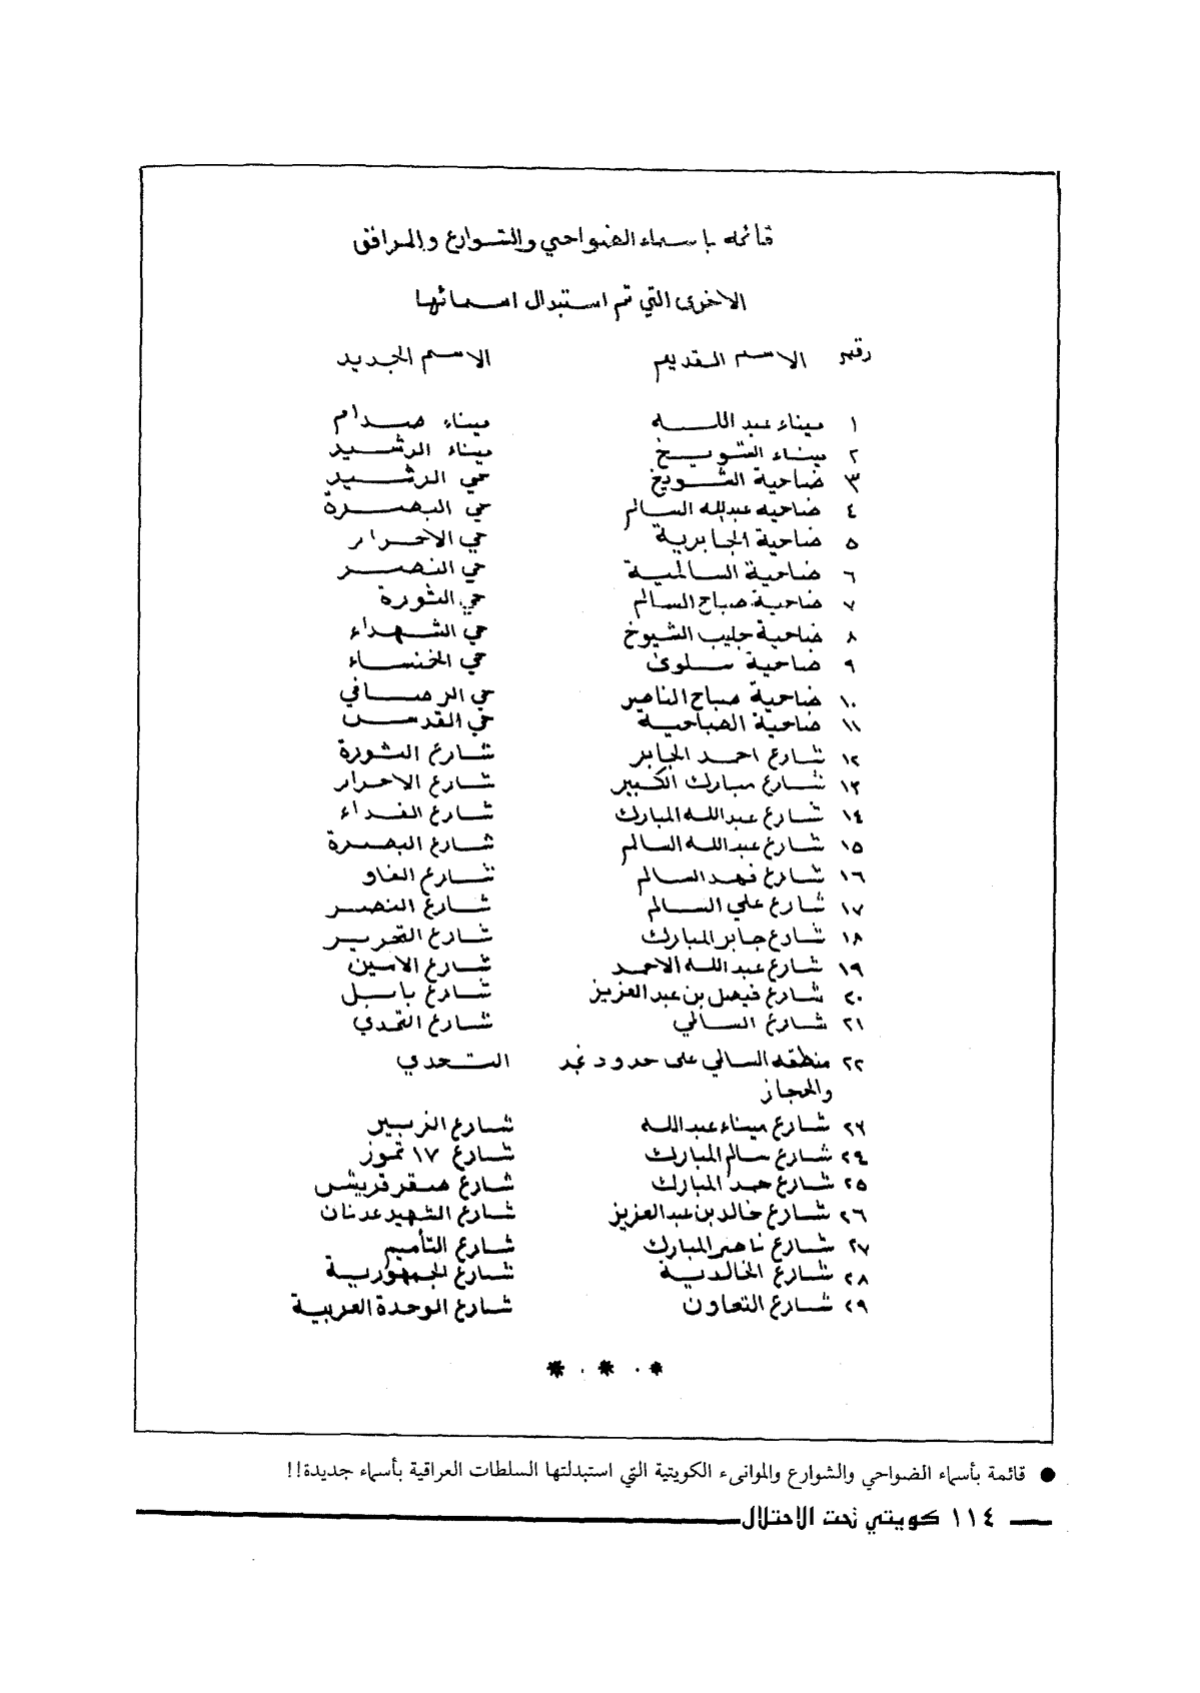 قائمه باسماء الضواحي والشوارع والمرافق
الاخرى التي تم استبدال اسمائها
رقم الاسم القديم الاسم الجديد
١ ميناء عبد الله ميناء صدام
٢ ميناء الشويخ ميناء الرشيد
٣ ضاحية الشويخ حي الرشيد
٤ ضاحيه عبدالله السالم حي البصرة
٥ ضاحية الجابرية حي الاحرار
٦ ضاحية السالمية حي النصر
٧ ضاحية صباح السالم حي الثورة
٨ ضاحية جليب الشيوخ حي الشهداء
٩ ضاحية سلوى حي الخنساء
١٠ ضاحية صباح الناصر حي الرصافي
١١ ضاحية الصباحية حي القدس
١٢ شارع احمد الجابر شارع الثورة
١٣ شارع مبارك الكبير شارع الاحرار
١٤ شارع عبدالله المبارك شارع الفداء
١٥ شارع عبدالله السالم شارع البصرة
١٦ شارع فهد السالم شارع الفاو
١٧ شارع علي السالم شارع النصر
١٨ شارع جابر المبارك شارع التحرير
١٩ شارع عبد الله الاحمد شارع الامين
٢٠ شارع فيصل بن عبد العزيز شارع بابل
٢١ شارع السالمي شارع التحدي
٢٢ منطقه السالمي على حدود نجد التحدي
والحجاز
٢٣ شارع ميناء عبدالله شارع الزبير
٢٤ شارع سالم المبارك شارع ١٧ تموز
٢٥ شارع حمد المبارك شارع صقر قريش
٢٦ شارع خالد بن عبد العزيز شارع الشهيد عدنان
٢٧ شارع ناصر المبارك شارع التأميم
٢٨ شارع الخالدية شارع الجمهورية
٢٩ شارع التعاون شارع الوحدة العربية
* · * · *
● قائمة بأسماء الضواحي والشوارع والموانىء الكويتية التي استبدلتها السلطات العراقية بأسماء جديدة!!
١١٤ كويتي تحت الاحتلال